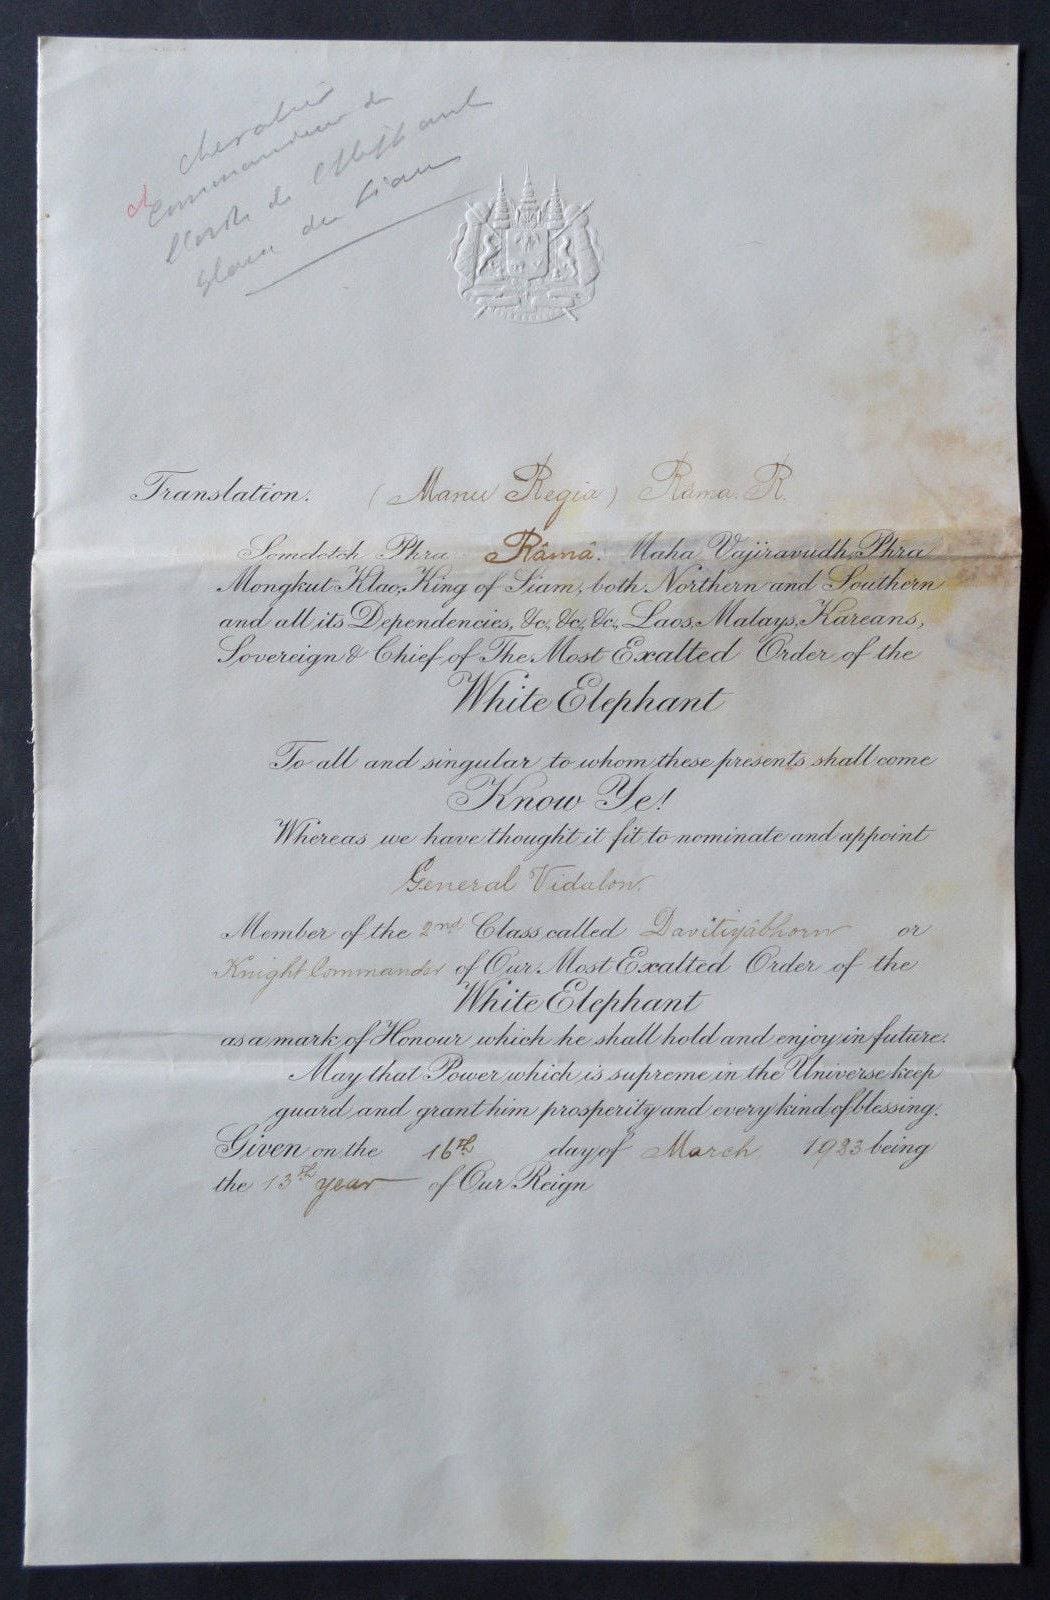 chevalier
Commandeur de
l'ordre de l'Elephant
blanc du Siam
Translation. (Manu Regia) Râma. R.
Somdetch Phra Râmâ. Maha Vajiravudh, Phra
Mongkut Klao, King of Siam, both Northern and Southern
and all its Dependencies, &c, &c, &c, Laos, Malays, Kareans,
Sovereign & Chief of The Most Exalted Order of the
White Elephant
To all and singular to whom these presents shall come
Know Ye!
Whereas we have thought it fit to nominate and appoint
General Vidalon.
Member of the 2nd Class called Davitiyâbhorn or
Knight Commander of Our Most Exalted Order of the
White Elephant
as a mark of Honour which he shall hold and enjoy in future.
May that Power which is supreme in the Universe keep
guard and grant him prosperity and every kind of blessing.
Given on the 16th day of March 1923 being
the 13th year of Our Reign